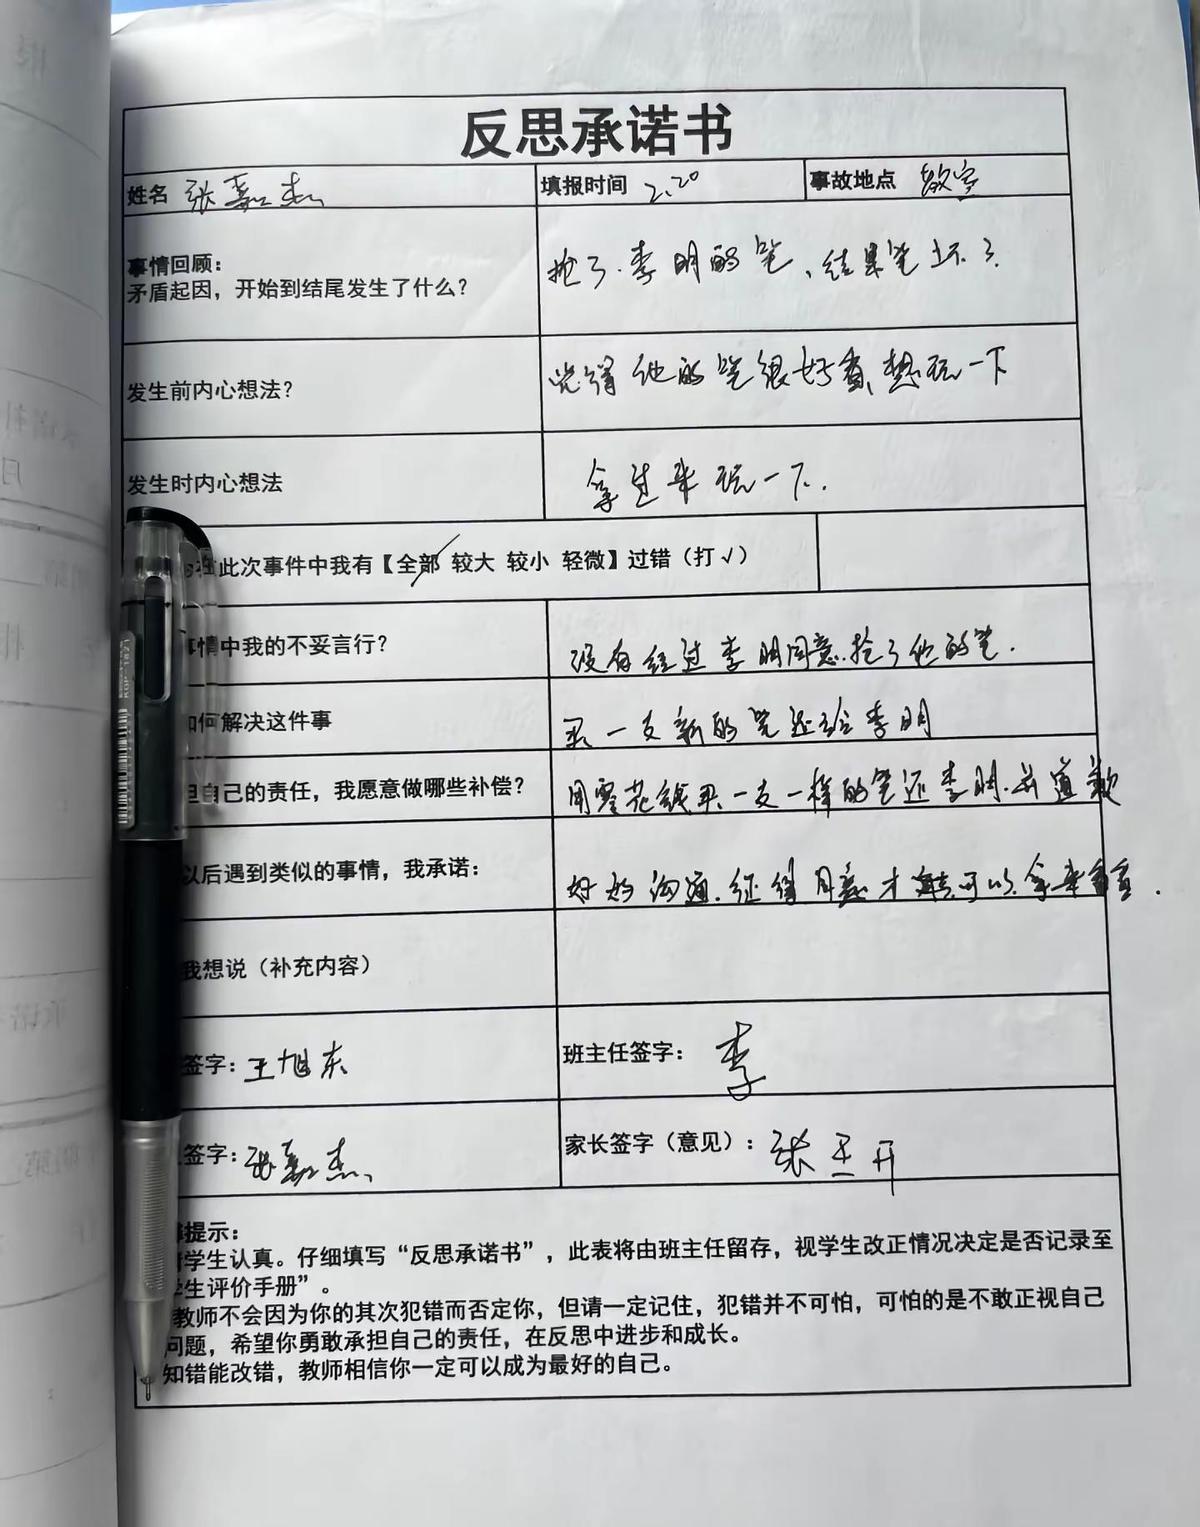 反思承诺书
姓名 张嘉杰 填报时间 2.20 事故地点 教室
事情回顾：
矛盾起因，开始到结尾发生了什么？
抢了.李明的笔、结果笔坏了.
发生前内心想法？
觉得他的笔很好看、想玩一下
发生时内心想法
拿过来玩一下.
在此次事件中我有【全部 较大 较小 轻微】过错（打√）
事情中我的不妥言行？
没有经过李明同意.抢了他的笔.
如何解决这件事
买一支新的笔还给李明
担自己的责任，我愿意做哪些补偿？
用零花钱买一支一样的笔还李明.并道歉
以后遇到类似的事情，我承诺：
好好沟通.征得同意才能可以拿来看看.
我想说（补充内容）
签字：王旭东
班主任签字： 李
签字：张嘉杰
家长签字（意见）：张玉开
提示：
请学生认真。仔细填写“反思承诺书”，此表将由班主任留存，视学生改正情况决定是否记录至
学生评价手册”。
教师不会因为你的其次犯错而否定你，但请一定记住，犯错并不可怕，可怕的是不敢正视自己
问题，希望你勇敢承担自己的责任，在反思中进步和成长。
知错能改错，教师相信你一定可以成为最好的自己。